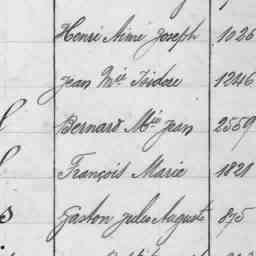 Henri Aimé Joseph 1026
Jean M.ie Isidore 1246
Bernard M.ie Jean 2559
François Marie 1821
s Gaston Jules Auguste 875